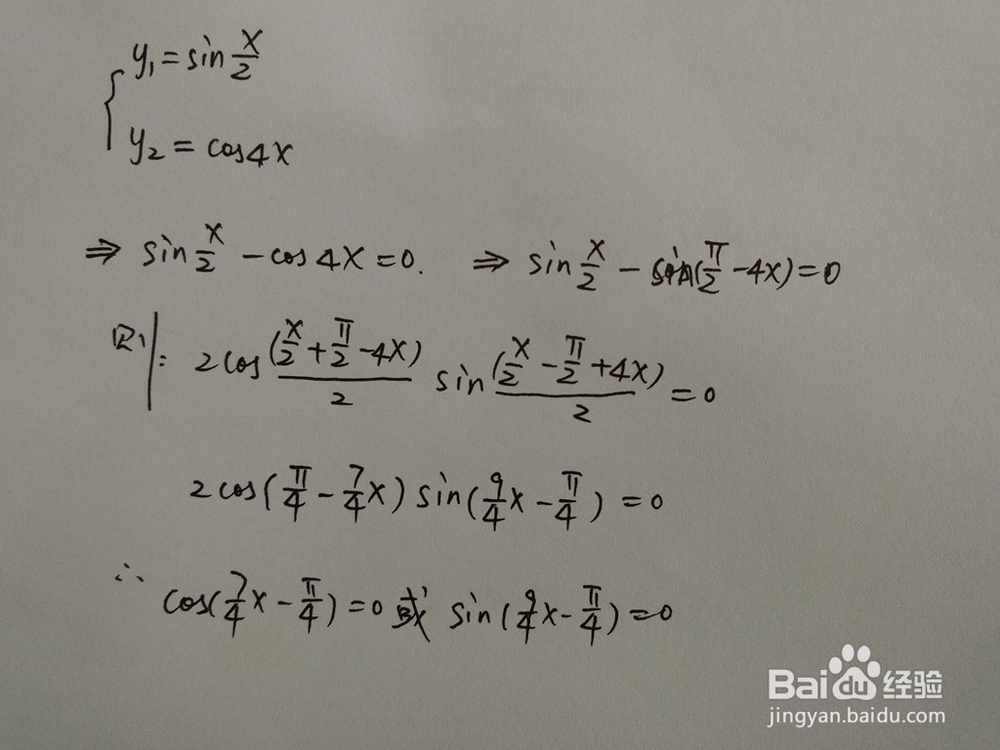 y₁ = sin x/2
y₂ = cos4x
⇒ sin x/2 - cos4x = 0. ⇒ sin x/2 - sin(π/2 - 4x) = 0
则: 2cos (x/2 + π/2 - 4x)/2 sin (x/2 - π/2 + 4x)/2 = 0
2cos(π/4 - 7/4x) sin(9/4x - π/4) = 0
∴ cos(7/4x - π/4) = 0 或 sin(9/4x - π/4) = 0
Baidu 经验
jingyan.baidu.com